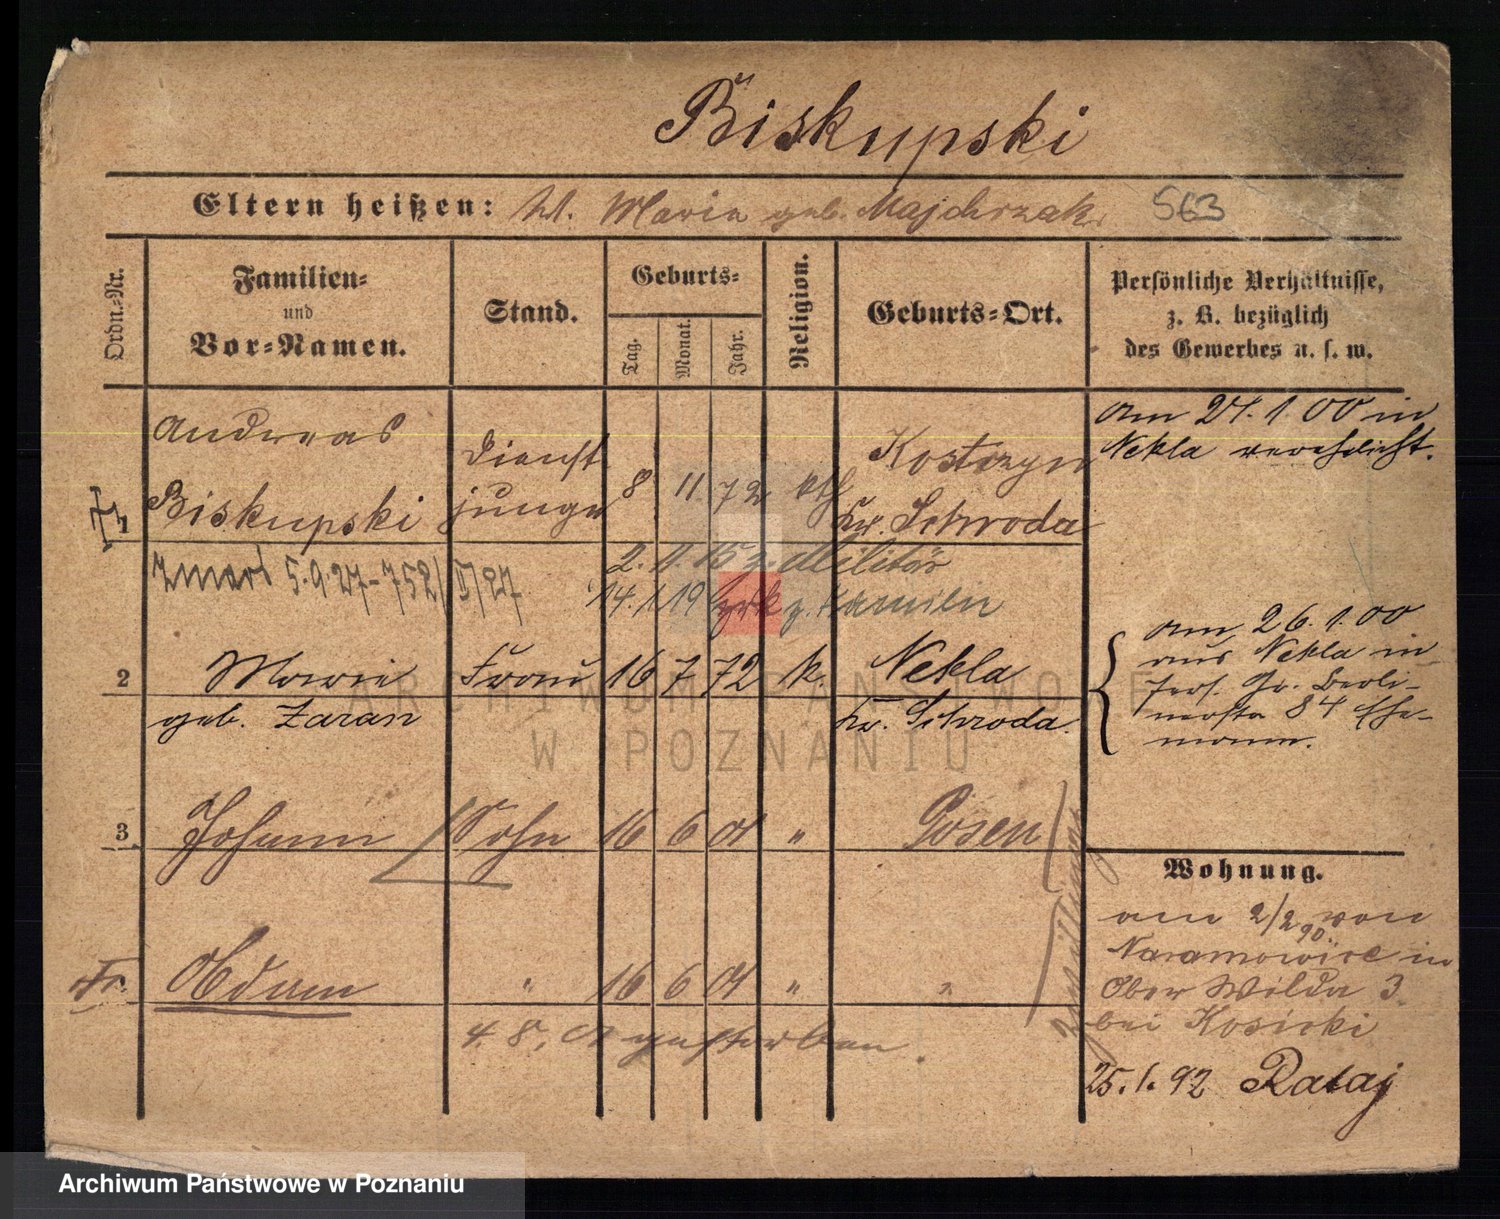 Biskupski
Eltern heißen: W. Maria geb. Majchrzak. 563
Ordn.-Nr.
Familien-
und
Vor-Namen.
Stand.
Geburts-
Tag.
Monat.
Jahr.
Religion.
Geburts-Ort.
Persönliche Verhältnisse,
z. B. bezüglich
des Gewerbes u. s. w.
Andreas
Biskupski
Dienst
junge
8 11. 72 kth
Kostrzyn
Kr. Schroda
am 27. 1. 00 in
Nekla verehelicht.
zmarł 5.9.27-752/V/27
2. 11. 15 z. Militär
14. 1. 19 zrk z.
2 Marie Frau 16 7 72 k. Nekla
geb. Zaran Kr. Schroda.
am 26. 1. 00
aus Nekla in
Jers. Gr. Berli-
nerstr 84 Ehe-
mann.
3. Johann Sohn 16 6 01 " Posen
Adam " 16 6 01 " "
4. 8. 01 gestorben.
Zwillinge
Wohnung.
am 2/2 90 von
Naramowice in
Ober Wilda 3
bei Kosicki
25. 1. 92 Rataj
ARCHIWUM PAŃSTWOWE
W POZNANIU
Archiwum Państwowe w Poznaniu